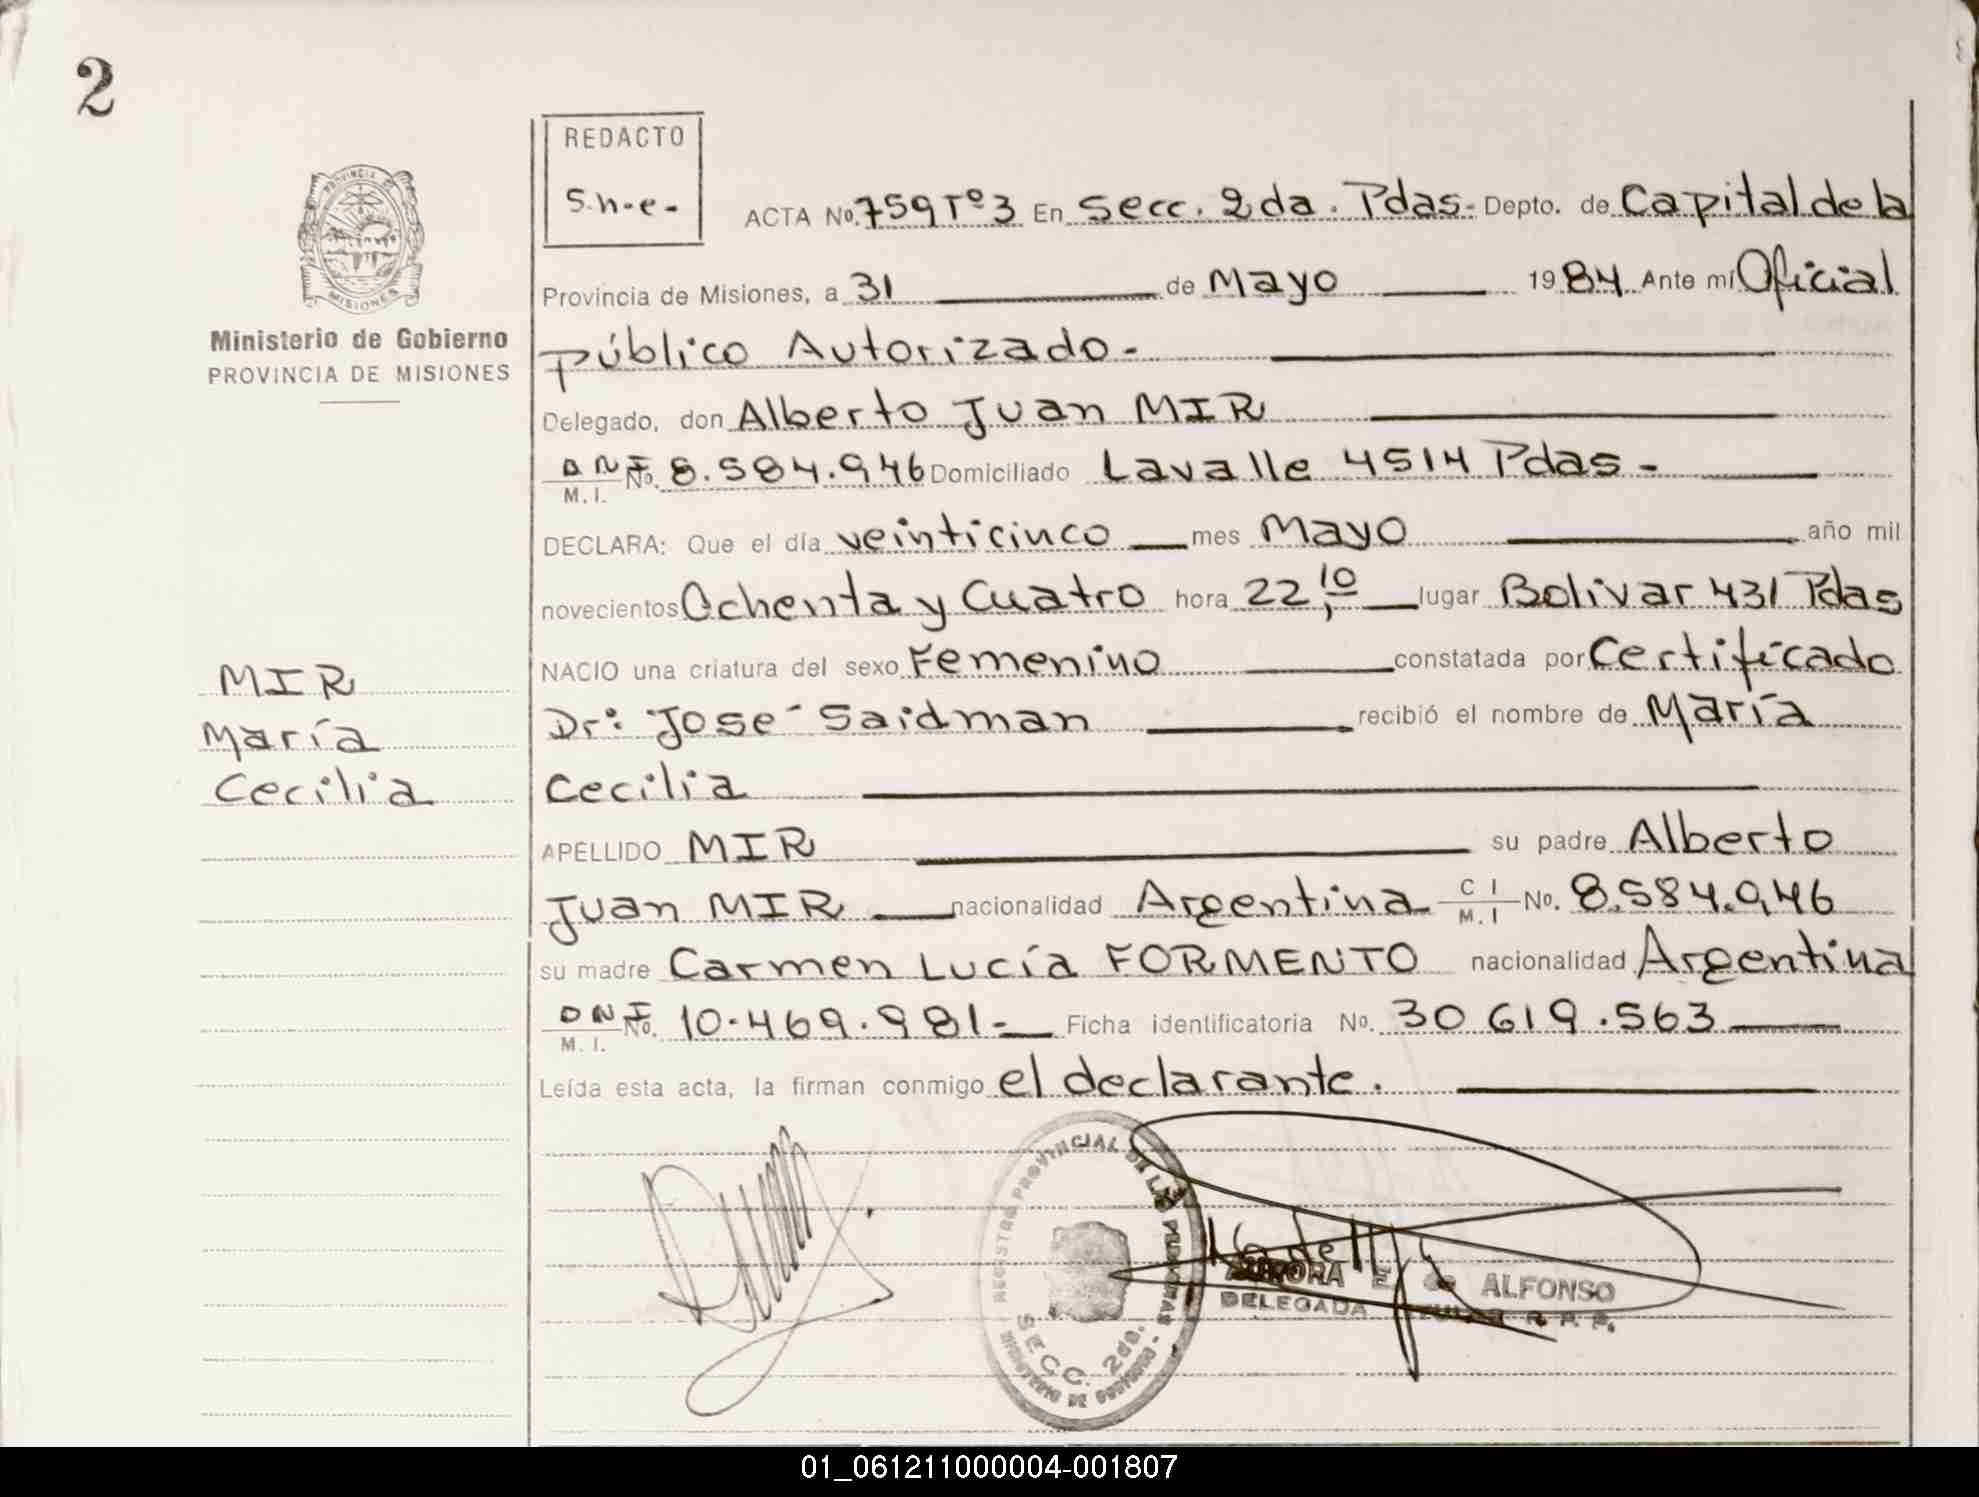 2
REDACTO
S.h.e.-
PROVINCIA
MISIONES
Ministerio de Gobierno
PROVINCIA DE MISIONES
ACTA No. 759 Tº 3 En Secc. 2da. Pdas.- Depto. de Capital de la
Provincia de Misiones, a 31 de Mayo 1984 Ante mí Oficial
Público Autorizado.-
Delegado, don Alberto Juan MIR
DNI M. I. No. 8.584.946 Domiciliado Lavalle 4514 Pdas-
DECLARA: Que el día veinticinco mes Mayo año mil
novecientos Ochenta y Cuatro hora 22,10 lugar Bolivar 431 Pdas
NACIO una criatura del sexo Femenino constatada por Certificado
Dr: José Saidman recibió el nombre de María
Cecilia
APELLIDO MIR su padre Alberto
Juan MIR nacionalidad Argentina C I M. I No. 8.584.946
su madre Carmen Lucía FORMENTO nacionalidad Argentina
DNI M. I. No. 10.469.981- Ficha identificatoria No. 30 619.563
Leída esta acta, la firman conmigo el declarante.
MIR
María
Cecilia
REGISTRO PROVINCIAL DE LAS PERSONAS -
SECC. 2da.
MINISTERIO DE GOBIERNO
AURORA E. de ALFONSO
DELEGADA TITULAR R. P. P.
01_061211000004-001807